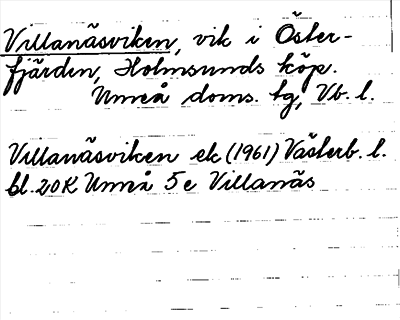 Villanäsviken, vik i Öster-
fjärden, Holmsunds köp.
Umeå doms. tg, Vb. l.
Villanäsviken ek (1961) Västerb. l.
bl. 20K Umeå 5e Villanäs